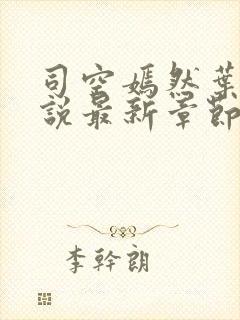 司空嫣然葉
說最新章節
李幹朗